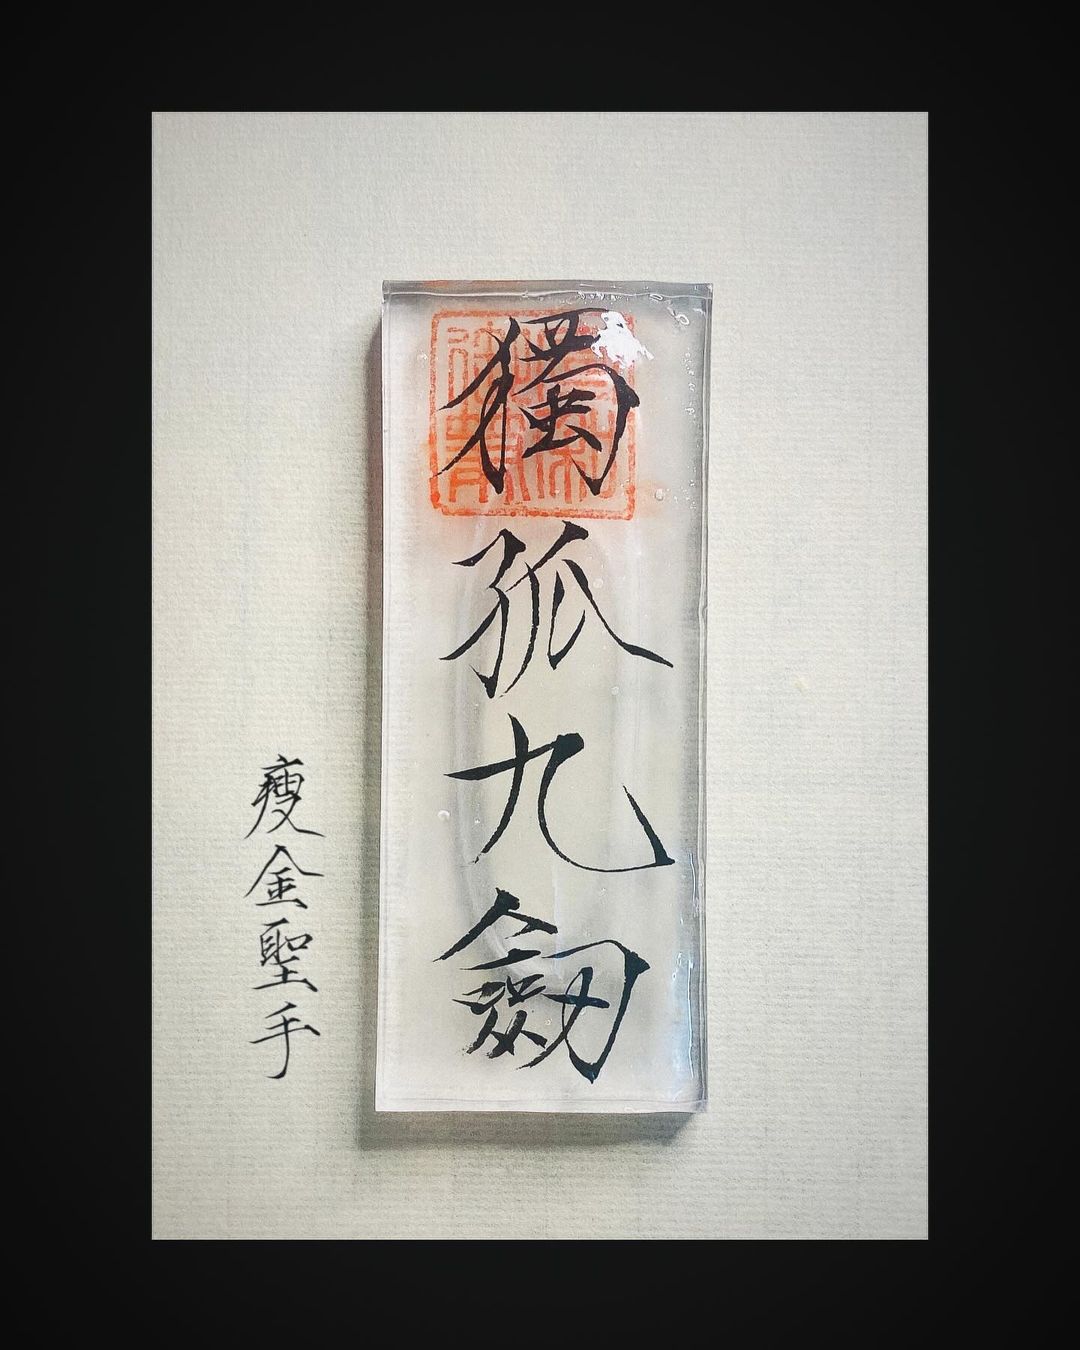 獨孤九劒
瘦金聖手